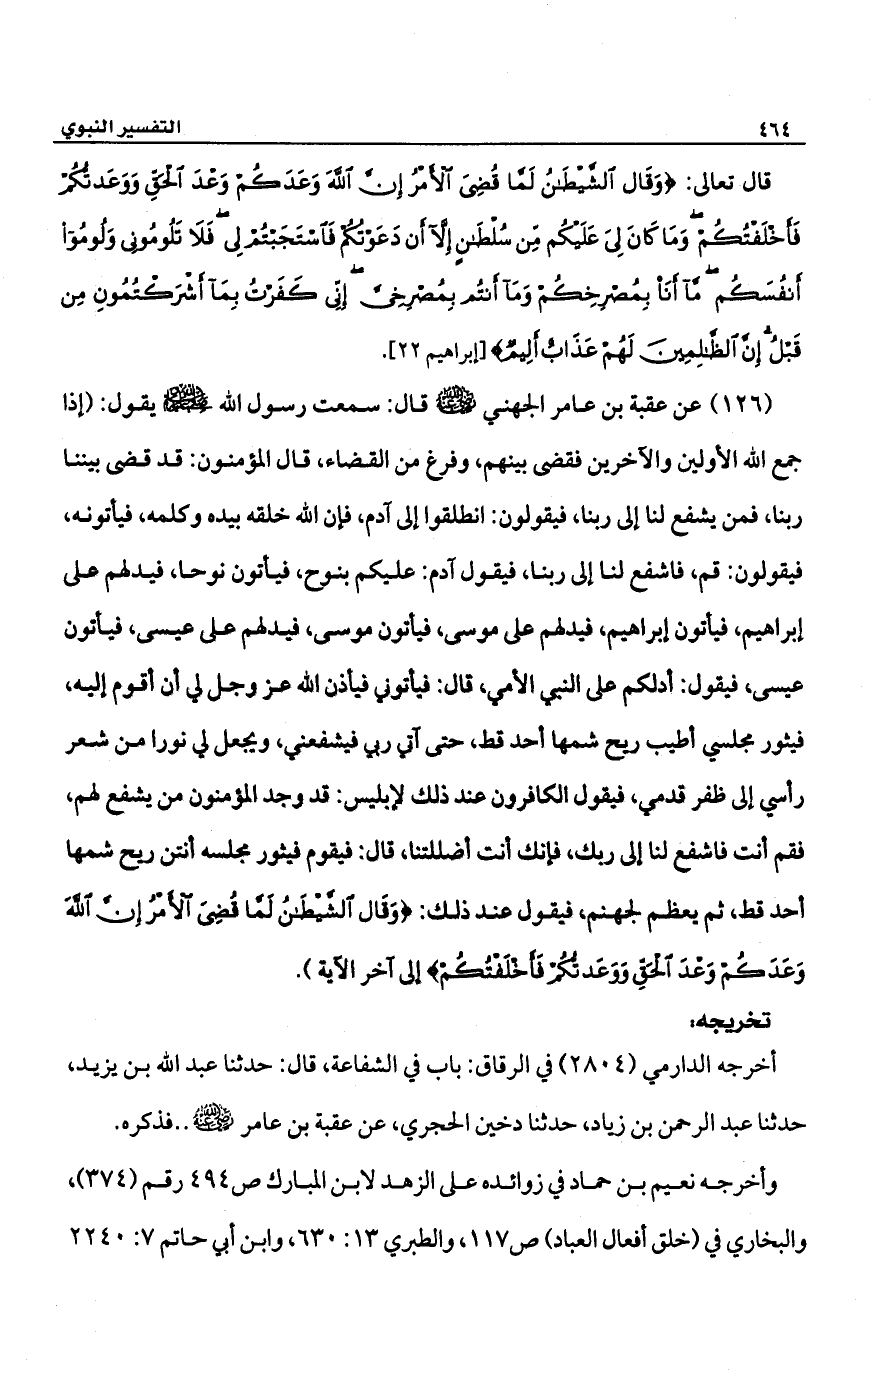 ٤٦٤ التفسير النبوي
قال تعالى: ﴿وَقَالَ ٱلشَّيْطَٰنُ لَمَّا قُضِىَ ٱلْأَمْرُ إِنَّ ٱللَّهَ وَعَدَكُمْ وَعْدَ ٱلْحَقِّ وَوَعَدتُّكُمْ
فَأَخْلَفْتُكُمْ ۖ وَمَا كَانَ لِىَ عَلَيْكُم مِّن سُلْطَٰنٍ إِلَّآ أَن دَعَوْتُكُمْ فَٱسْتَجَبْتُمْ لِى ۖ فَلَا تَلُومُونِى وَلُومُوٓا۟
أَنفُسَكُم ۖ مَّآ أَنَا۠ بِمُصْرِخِكُمْ وَمَآ أَنتُم بِمُصْرِخِىَّ ۖ إِنِّى كَفَرْتُ بِمَآ أَشْرَكْتُمُونِ مِن
قَبْلُ ۗ إِنَّ ٱلظَّٰلِمِينَ لَهُمْ عَذَابٌ أَلِيمٌ﴾ [إبراهيم ٢٢].
(١٢٦) عن عقبة بن عامر الجهني رضي الله عنه قال: سمعت رسول الله ﷺ يقول: (إذا
جمع الله الأولين والآخرين فقضى بينهم، وفرغ من القضاء، قال المؤمنون: قد قضى بيننا
ربنا، فمن يشفع لنا إلى ربنا، فيقولون: انطلقوا إلى آدم، فإن الله خلقه بيده وكلمه، فيأتونه،
فيقولون: قم، فاشفع لنا إلى ربنا، فيقول آدم: عليكم بنوح، فيأتون نوحا، فيدلهم على
إبراهيم، فيأتون إبراهيم، فيدلهم على موسى، فيأتون موسى، فيدلهم على عيسى، فيأتون
عيسى، فيقول: أدلكم على النبي الأمي، قال: فيأتوني فيأذن الله عز وجل لي أن أقوم إليه،
فيثور مجلسي أطيب ريح شمها أحد قط، حتى آتي ربي فيشفعني، ويجعل لي نورا من شعر
رأسي إلى ظفر قدمي، فيقول الكافرون عند ذلك لإبليس: قد وجد المؤمنون من يشفع لهم،
فقم أنت فاشفع لنا إلى ربك، فإنك أنت أضللتنا، قال: فيقوم فيثور مجلسه أنتن ريح شمها
أحد قط، ثم يعظم لجهنم، فيقول عند ذلك: ﴿وَقَالَ ٱلشَّيْطَٰنُ لَمَّا قُضِىَ ٱلْأَمْرُ إِنَّ ٱللَّهَ
وَعَدَكُمْ وَعْدَ ٱلْحَقِّ وَوَعَدتُّكُمْ فَأَخْلَفْتُكُمْ﴾ إلى آخر الآية ).
تخريجه:
أخرجه الدارمي (٢٨٠٤) في الرقاق: باب في الشفاعة، قال: حدثنا عبد الله بن يزيد،
حدثنا عبد الرحمن بن زياد، حدثنا دخين الحجري، عن عقبة بن عامر رضي الله عنه ..فذكره.
وأخرجه نعيم بن حماد في زوائده على الزهد لابن المبارك ص٤٩٤ رقم (٣٧٤)،
والبخاري في (خلق أفعال العباد) ص١١٧، والطبري ١٣: ٦٣٠، وابن أبي حاتم ٧: ٢٢٤٠